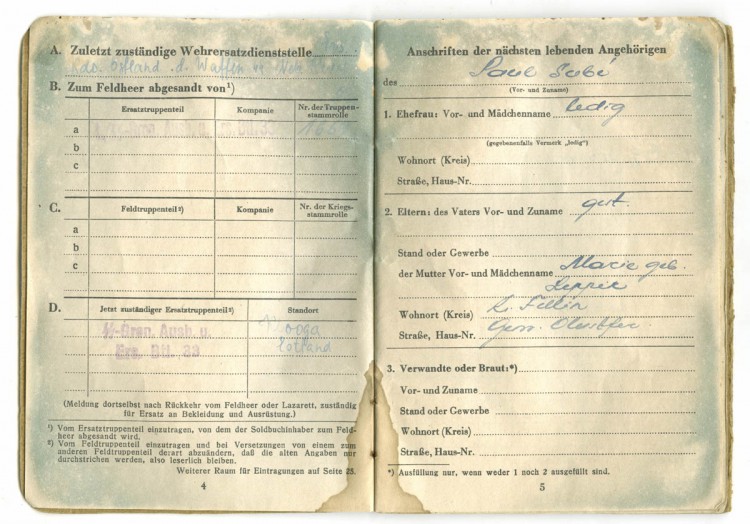 A. Zuletzt zuständige Wehrersatzdienststelle
Ostland d. Waffen
B. Zum Feldheer abgesandt von¹)
Ersatztruppenteil
Kompanie
Nr. der Truppen-
stammrolle
a
b
c
C.
Feldtruppenteil²)
Kompanie
Nr. der Kriegs-
stammrolle
a
b
c
D.
Jetzt zuständiger Ersatztruppenteil²)
Standort
Gren. Ausb. u.
Ers.
(Meldung dortselbst nach Rückkehr vom Feldheer oder Lazarett, zuständig
für Ersatz an Bekleidung und Ausrüstung.)
¹) Vom Ersatztruppenteil einzutragen, von dem der Soldbuchinhaber zum Feld-
heer abgesandt wird.
²) Vom Feldtruppenteil einzutragen und bei Versetzungen von einem zum
anderen Feldtruppenteil derart abzuändern, daß die alten Angaben nur
durchstrichen werden, also leserlich bleiben.
Weiterer Raum für Eintragungen auf Seite
4
Anschriften der nächsten lebenden Angehörigen
des
(Vor- und Zuname)
1. Ehefrau: Vor- und Mädchenname ledig
(gegebenenfalls Vermerk „ledig")
Wohnort (Kreis)
Straße, Haus-Nr.
2. Eltern: des Vaters Vor- und Zuname
Stand oder Gewerbe
der Mutter Vor- und Mädchenname Marie geb.
Wohnort (Kreis)
Straße, Haus-Nr.
3. Verwandte oder Braut:*)
Vor- und Zuname
Stand oder Gewerbe
Wohnort (Kreis)
Straße, Haus-Nr.
*) Ausfüllung nur, wenn weder 1 noch 2 ausgefüllt sind.
5